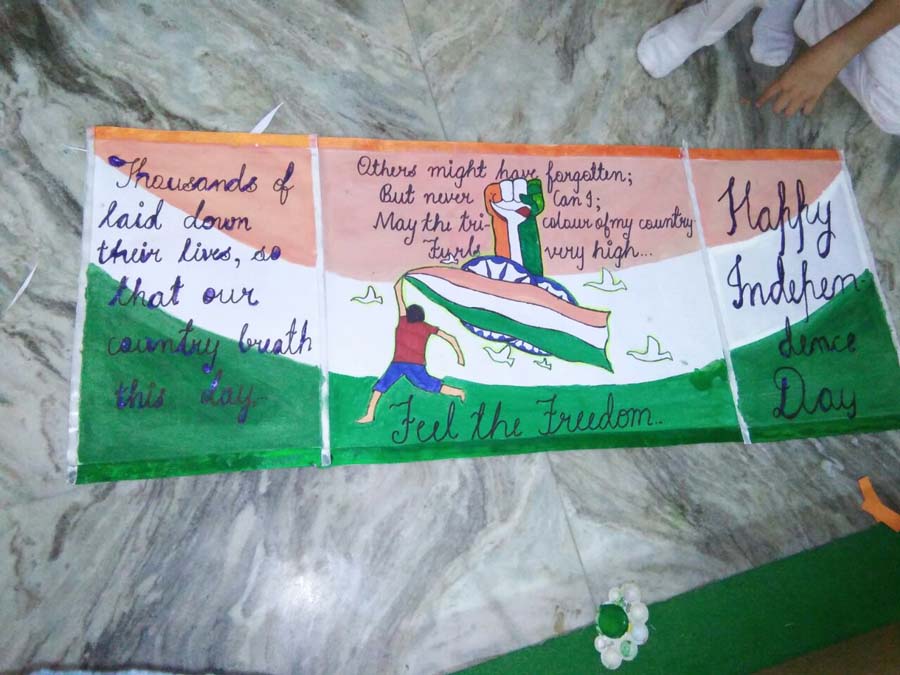 Thousands of
laid down
their lives, so
that our
country breath
this day-
Others might have forgotten;
But never Can I;
May the tri- colour of my country
Furls very high...
Feel the Freedom..
Happy
Indepen-
dence
Day